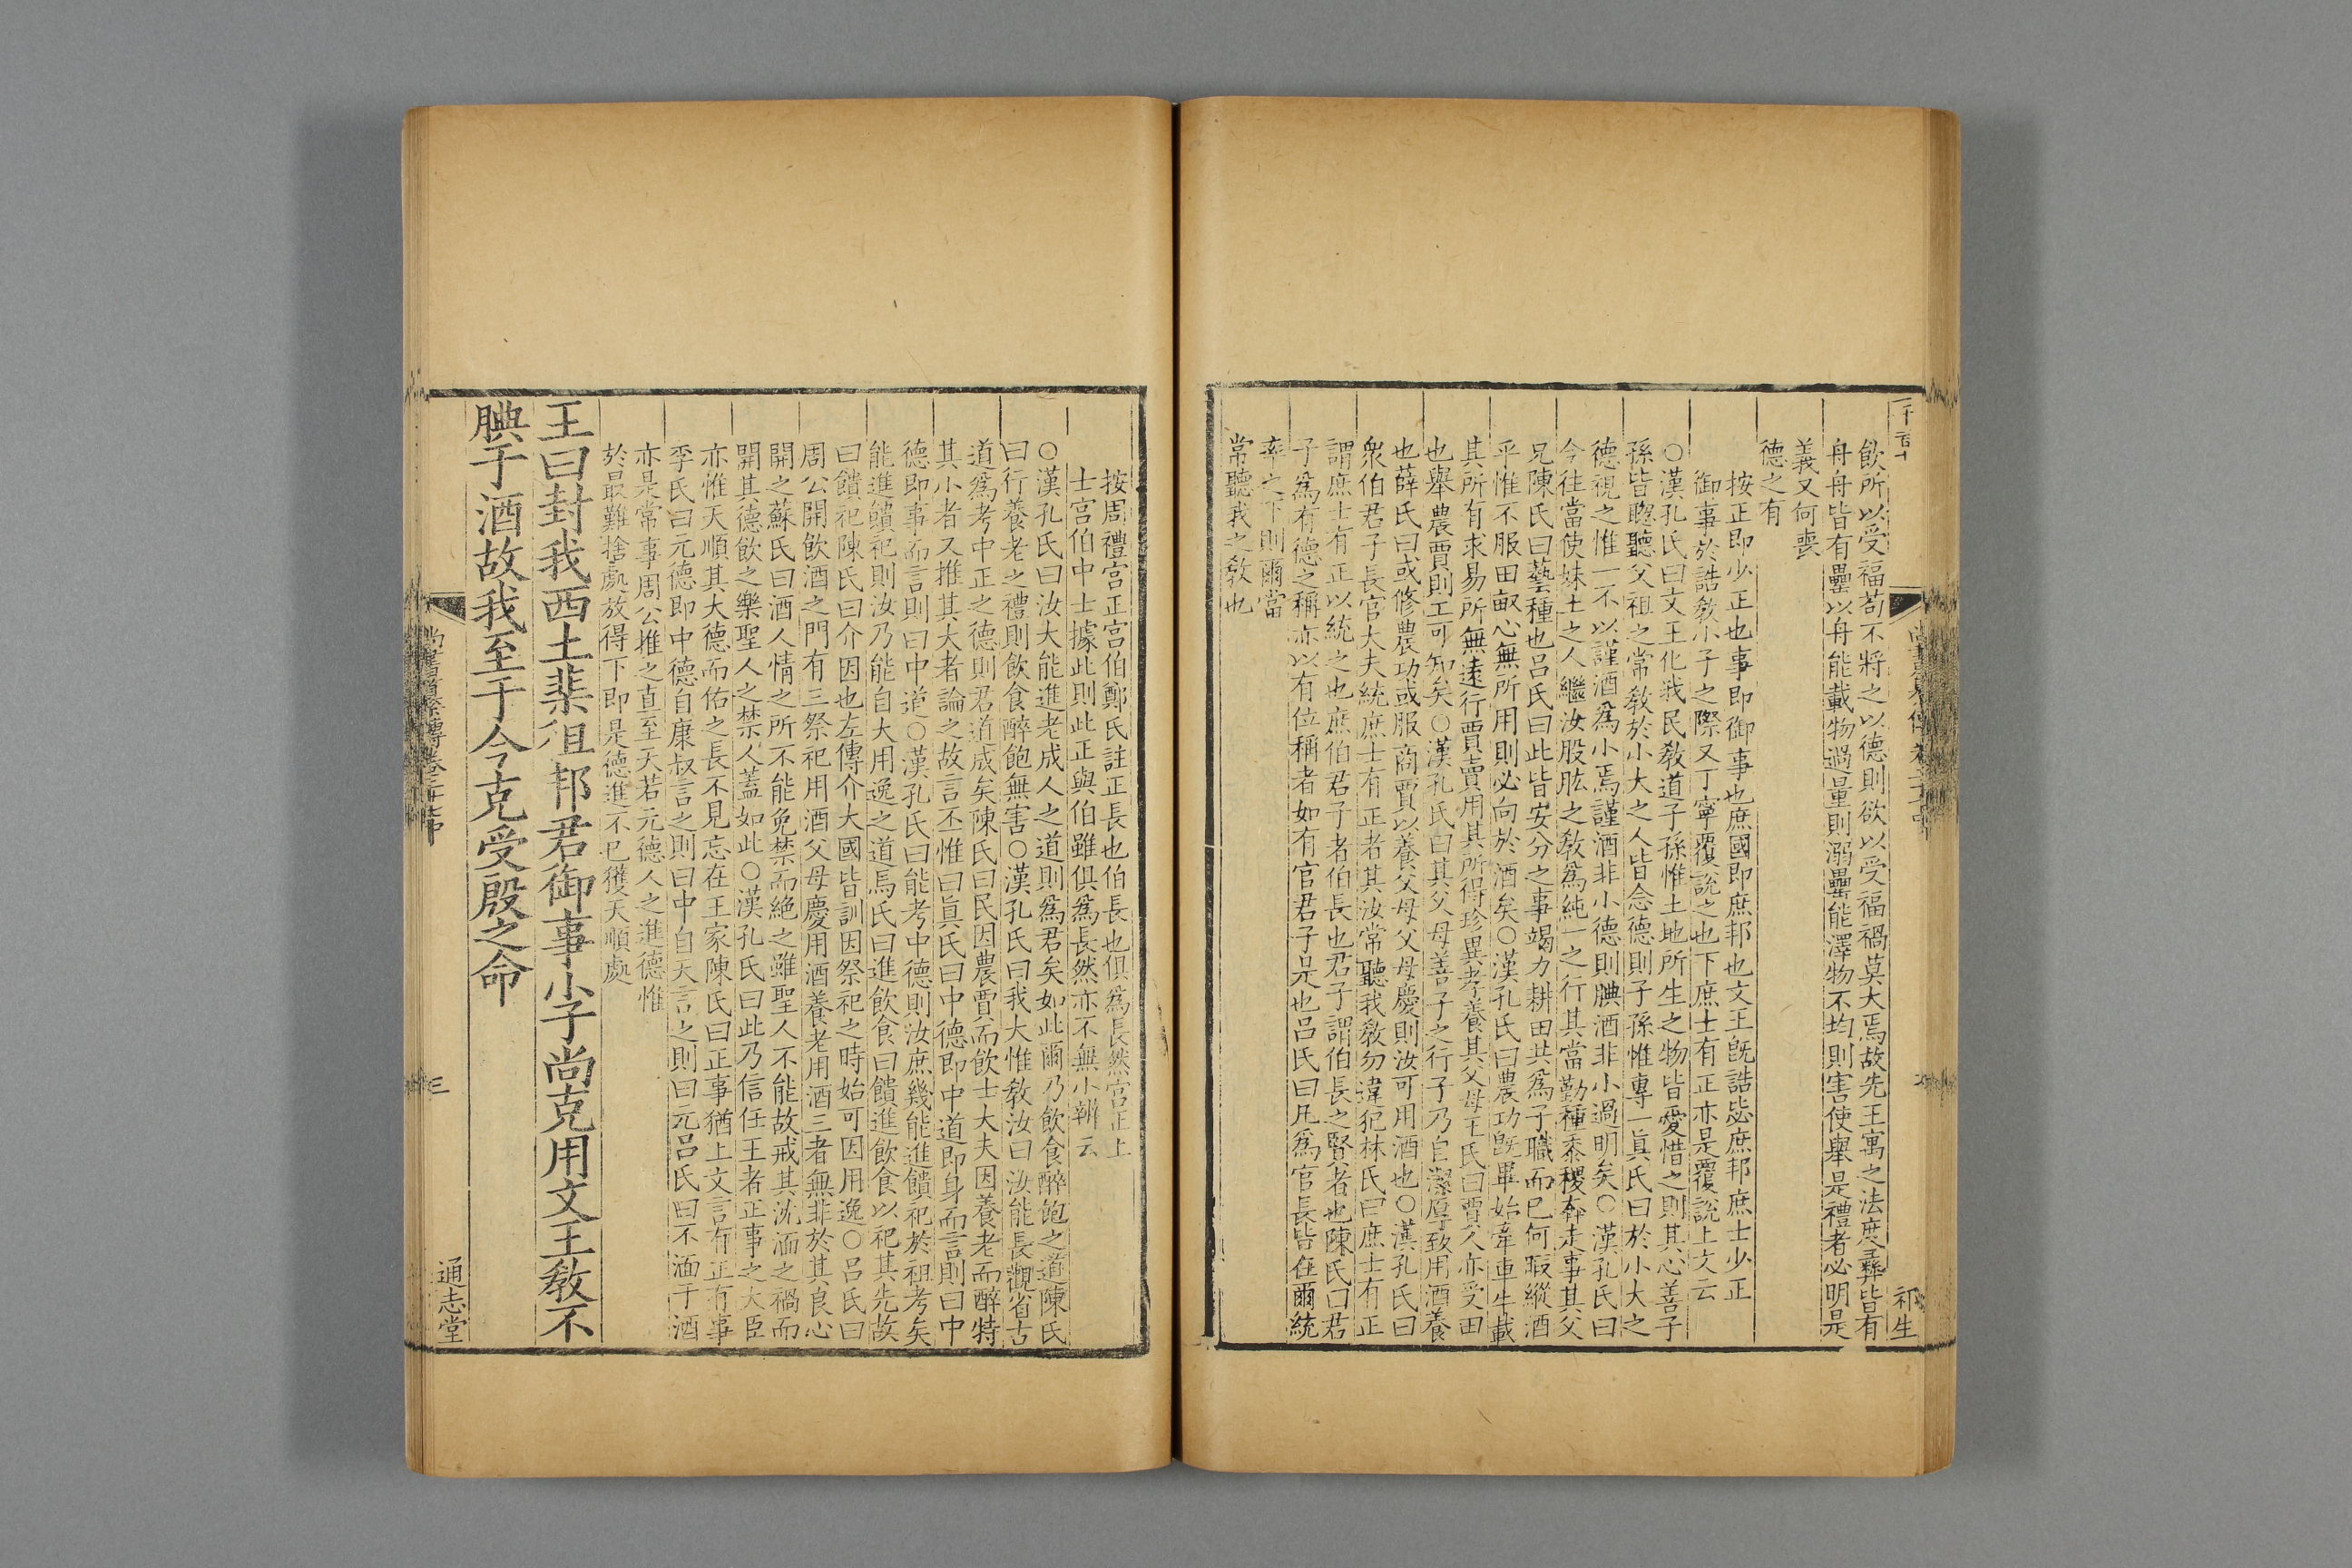 飲所以受福苟不將之以德則欲以受福禍莫大焉故先王寓之法度彞皆有
舟舟皆有罍以舟能載物過量則溺罍能澤物不均則害使舉是禮者必明是
義又何喪
德之有
按正即少正也事即御事也庶國即庶邦也文王旣誥毖庶邦庶士少正
御事於誥敎小子之際又丁寧覆說之也下庶士有正亦是覆說上文云
○漢孔氏曰文王化我民敎道子孫惟土地所生之物皆愛惜之則其心善子
孫皆聦聽父祖之常敎於小大之人皆念德則子孫惟專一眞氏曰於小大之
德視之惟一不以謹酒爲小焉謹酒非小德則腆酒非小過明矣○漢孔氏曰
今往當使妹土之人繼汝股肱之敎爲純一之行其當勤種黍稷奔走事其父
兄陳氏曰藝種也吕氏曰此皆安分之事竭力耕田共爲子職而已何暇縱酒
乎惟不服田畝心無所用則必向於酒矣○漢孔氏曰農功旣畢始牽車牛載
其所有求易所無遠行賈賣用其所得珍異孝養其父母王氏曰賈人亦受田
也舉農賈則工可知矣○漢孔氏曰其父母善子之行子乃自潔厚致用酒養
也薛氏曰或修農功或服商賈以養父母父母慶則汝可用酒也○漢孔氏曰
衆伯君子長官大夫統庶士有正者其汝常聽我敎勿違犯林氏曰庶士有正
謂庶士有正以統之也庶伯君子者伯長也君子謂伯長之賢者也陳氏曰君
子爲有德之稱亦以有位稱者如有官君子是也吕氏曰凡爲官長皆在爾統
率之下則爾當
常聽我之敎也
祁生
按周禮宫正宫伯鄭氏註正長也伯長也俱爲長然宫正上
士宫伯中士據此則此正與伯雖俱爲長然亦不無小辨云
○漢孔氏曰汝大能進老成人之道則爲君矣如此爾乃飲食醉飽之道陳氏
曰行養老之禮則飲食醉飽無害○漢孔氏曰我大惟敎汝曰汝能長觀省古
道爲考中正之德則君道成矣陳氏曰民因農賈而飲士大夫因養老而醉特
其小者又推其大者論之故言丕惟曰眞氏曰中德即中道即身而言則曰中
德即事而言則曰中道○漢孔氏曰能考中德則汝庶幾能進饋祀於祖考矣
能進饋祀則汝乃能自大用逸之道馬氏曰進飲食曰饋進飲食以祀其先故
曰饋祀陳氏曰介因也左傳介大國皆訓因祭祀之時始可因用逸○吕氏曰
周公開飲酒之門有三祭祀用酒父母慶用酒養老用酒三者無非於其良心
開之蘇氏曰酒人情之所不能免禁而絶之雖聖人不能故戒其沈湎之禍而
開其德飲之樂聖人之禁人蓋如此○漢孔氏曰此乃信任王者正事之大臣
亦惟天順其大德而佑之長不見忘在王家陳氏曰正事猶上文言有正有事
李氏曰元德即中德自康叔言之則曰中自天言之則曰元吕氏曰不湎于酒
亦是常事周公推之直至天若元德人之進德惟
於最難捨處放得下即是德進不已獲天順處
王曰封我西土棐徂邦君御事小子尚克用文王敎不
腆于酒故我至于今克受殷之命
三
通志堂